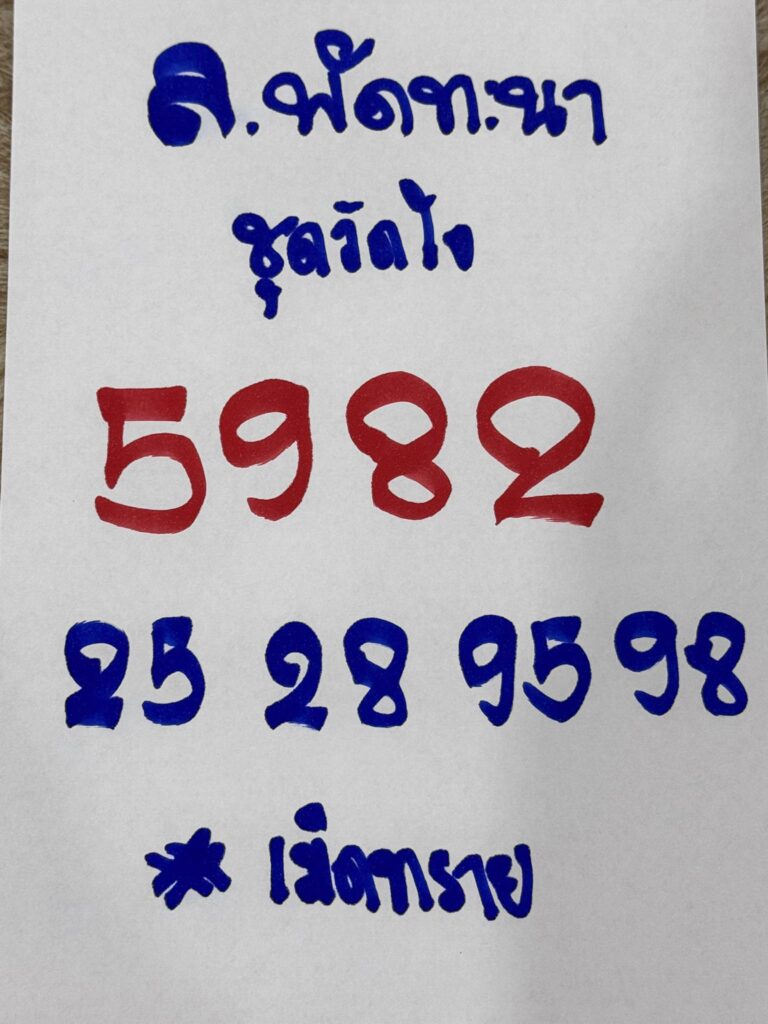 ล.พัดทะนา
ชุดวัดใจ
5982
25 28 95 98
* เม็ดทราย